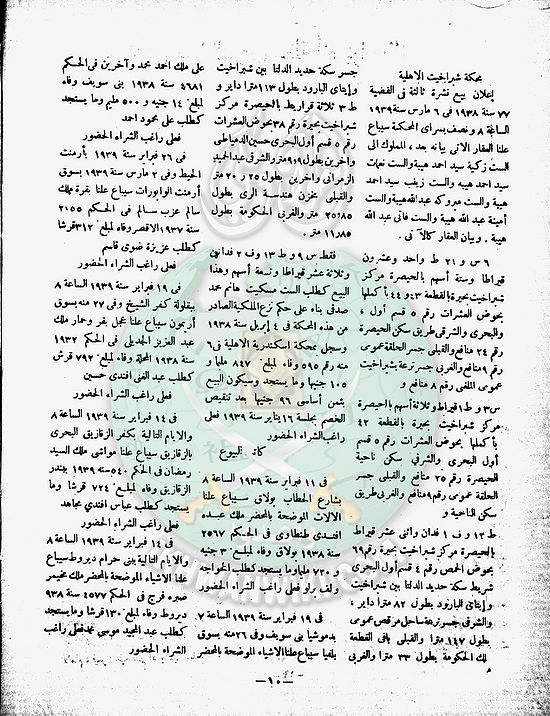 محكمة شبراخيت الاهلية
إعلان بيع نشرة ثالثة فى القضية
٧٧ سنة ١٩٣٨ فى ٦ مارس سنة ١٩٣٩
الساعة ٨ ونصف بسراى المحكمة سيباع
علنا العقار الاتى بيانه بعده المملوك الى
الست زكية سيد احمد هيبه والست نعمات
سيد احمد هيبه والست زينب سيد احمد
هيبة والست مبروكه عبد الله هيبة والست
أمينة عبد الله هيبة والست فانى عبد الله
هيبة . وبيان العقار كالآتى .
٦ س و ٢١ ط واحد وعشرون
قيراطا وستة أسهم بالحيصرة مركز
شبراخيت بحيرة بالقطعة ٤٣ و ٤٤ بأكملها
بحوض العشرات رقم ٥ قسم أول ،
والبحرى والشرقى طريق سكن الحيصرة
رقم ٢٤ منافع والقبلى جسر الحلقة عمومى
رقم ٩ منافع والغربى جسر ترعة شبراخيت
عمومى الملغى رقم ٨ منافع و
٣ س و ١ ط قيراط وثلاثة أسهم بالحيصرة
مركز شبراخيت بحيرة بالقطعة ٤٢
بأكملها بحوض العشرات رقم ٥ قسم
أول البحرى والشرقى سكن ناحية
الحيصرة رقم ٢٥ منافع والقبلى جسر
الحلقة عمومى رقم ٩ منافع والغربى طريق
سكن الناحية و
١٢ ط و ١ ف فدان واثنى عشر قيراط
بالحيصرة مركز شبراخيت بحيرة رقم ٦٩
بحوض الحصص رقم ٤ قسم أول البحرى
شريط سكة حديد الدلتا بين شبراخيت
وإيتاى البارود بطول ٨٢ مترا داير ،
والشرقى جسر ترعة ساحل مرقص عمومى
بطول ١٤٧ مترا والقبلى باقى القطعة
لك الحكومة بطول ٣٣ مترا والغربى
جسر سكة حديد الدلتا بين شبراخيت
وإيتاى البارود بطول ١١٣ مترا داير و
٣ ط ثلاثة قراريط بالحيصرة مركز
شبراخيت بحيرة رقم ٣٨ بحوض العشرات
رقم ٥ قسم أول البحرى حسين الدمياطى
وآخرين بطول ٩٫٠٩ مترا والشرقى عبد الحميد
الزمرانى وآخرين بطول ٢٥ ر ٢٠ متر
والقبلى بمخزن هندسة الرى بطول
٢٥٫٨٥ متر والغربى الحكومة بطول
١١٫٨٥ متر .
فقط ٩ س و ١٣ ط و ٢ ف فدانين
وثلاثة عشر قيراطا وتسعة أسهم وهذا
البيع كطلب الست مسكيت هانم محمد
صدقى بناء على حكم نزع الملكية الصادر
من هذه المحكمة فى ٤ إبريل سنة ١٩٣٨
وسجل بمحكمة اسكندرية الاهلية فى ٦
منه رقم ٥٩٥ وفاء لمبلغ ٨٤٧ مليما و
١٠٥ جنيها وما يستجد وسيكون البيع
بثمن أساسى ٩٦ جنيها بعد تنقيص
الخمس بجلسة ١٦ يناير سنة ١٩٣٩ فعلى
راغب الشراء الحضور
كاتب البيوع
فى ١١ فبراير سنة ١٩٣٩ الساعة ٨
بشارع الحطاب بولاق سيباع علنا
الالات الموضحة بالمحضر ملك عبده
افندى طنطاوى فى الحكم ٢٥٦٧
سنة ١٩٣٨ بولاق وفاء لمبلغ ٣ جنيه
و ٧٣٠ مليما وما يستجد كطلب الخواجه
ولف براو فعلى راغب الشراء الحضور
فى ١٩ فبراير سنة ١٩٣٩ الساعة ٧
بدموشيا بنى سويف وفى ٢٦ منه بسوق
بلفيا سيباع علنا الاشياء الموضحة بالمحضر
على ملك احمد محمد وآخرين فى الحكم
٤٦٨١ سنة ١٩٣٨ بنى سويف وفاء
لمبلغ ١٤ جنيه و ٥٠٠ مليم وما يستجد
كطلب على محمود احمد
فعلى راغب الشراء الحضور
فى ٢٦ فبراير سنة ١٩٣٩ بأرمنت
الحيط وفى ٢ مارس سنة ١٩٣٩ بسوق
أرمنت الوابورات سيباع علنا بقرة ملك
سالم عزب سالم فى الحكم ٢٠٥٥
سنة ١٩٣٧ الاقصر وفاء لمبلغ ٣١٢ قرشا
كطلب عزيزة ضوى قاسم
فعلى راغب الشراء الحضور
فى ١٩ فبراير سنة ١٩٣٩ الساعة ٨
بمقلولة كفر الشيخ وفى ٢٧ منه بسوق
أربمون سيباع علنا عجل بقر وحمار ملك
عبد العزيز الجديلى فى الحكم ١٩٣٢
سنة ١٩٣٨ المحلة وفاء لمبلغ ٧٩٢ قرش
كطلب عبد الغنى افندى حسين
فعلى راغب الشراء الحضور
فى ١٤ فبراير سنة ١٩٣٩ الساعة ٨
والايام التالية بكفر الزقازيق البحرى
بالزقازيق سيباع علنا مواشى ملك السيد
رمضان فى الحكم ٥٤٠ سنة ١٩٣٩ بندر
الزقازيق وفاء لمبلغ ٧٢٤ قرشا وما
يستجد كطلب عباس افندى مجاهد
فعلى راغب الشراء الحضور
فى ١٤ فبراير سنة ١٩٣٩ الساعة ٨
والايام التالية ببنى حرام ديروط سيباع
علنا الاشياء الموضحة بالمحضر ملك مخيمر
صبره فرج فى الحكم ٤٥٧٧ سنة ٩٣٨
ديروط وفاء لمبلغ ١٣٠ قرشا وما يستجد
كطلب عبد المجيد موسى محمد فعلى راغب
الشراء الحضور
— ١٠ —